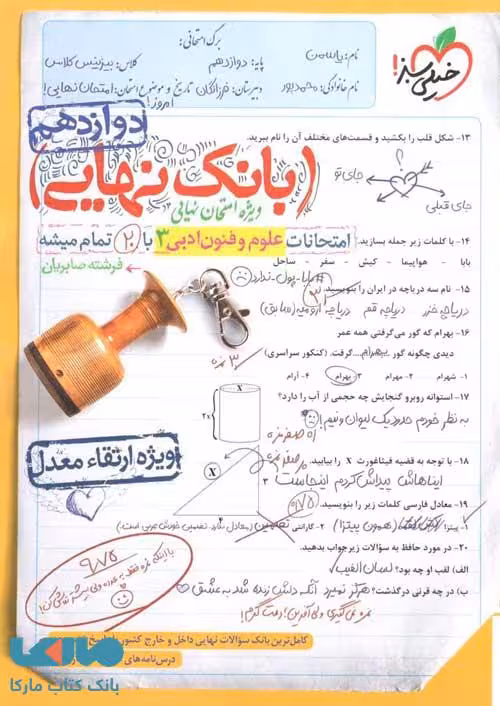 خیلی سبز!
برگ امتحانی:
نام: یاسمن
پایه: دوازدهم
کلاس: بیزینس کلاس
نام خانوادگی: محمدپور
دبیرستان: فرزانگان
تاریخ و موضوع امتحان: امتحان نهایی!
امروز!
دوازدهم
۱۳- شکل قلب را بکشید و قسمت‌های مختلف آن را نام ببرید.
(بانک نهایی)
ویژه امتحان نهایی
جای تو
جای قبلی
امتحانات علوم و فنون ادبی ۳ با ۲۰ تمام میشه
فرشته صابریان
۱۴- با کلمات زیر جمله بسازید.
بابا - هواپیما - کیش - سفر - ساحل
بابا پول ندارد
۱۵- نام سه دریاچه در ایران را بنویسید.
۳
دریاچه خزر دریاچه قم دریاچه ارومیه (سابق)
۱۶- بهرام که گور می‌گرفتی همه عمر
دیدی چگونه گور بهرام گرفت. (کنکور سراسری)
۱- شهرام ۲- مهرام ۳- بهرام ۴- آرام
۱۷- استوانه روبرو گنجایش چه حجمی از آب را دارد؟
به نظر خودم حدود یک لیوان و نیم!
X
2X
ویژه ارتقاء معدل
۱۸- با توجه به قضیه فیثاغورث X را بیابید.
ایناهاش پیداش کردم اینجاست
X
۳
۱۹- معادل فارسی کلمات زیر را بنویسید.
۱- پیتزا (همون پیتزا) ۲- گارانتی تضمین
۲۰- در مورد حافظ به سؤالات زیر جواب بدهید.
الف) لقب او چه بود؟ لسان الغیب
ب) در چه قرنی درگذشت؟ هرگز نمیرد آنکه دلش زنده شد به عشق
نمره نمی‌گیری ولی آفرین! دمت گرم!
۹/۷۵
کامل‌ترین بانک سؤالات نهایی داخل و خارج کشور
درس‌نامه‌های
مارکا
بانک کتاب مارکا